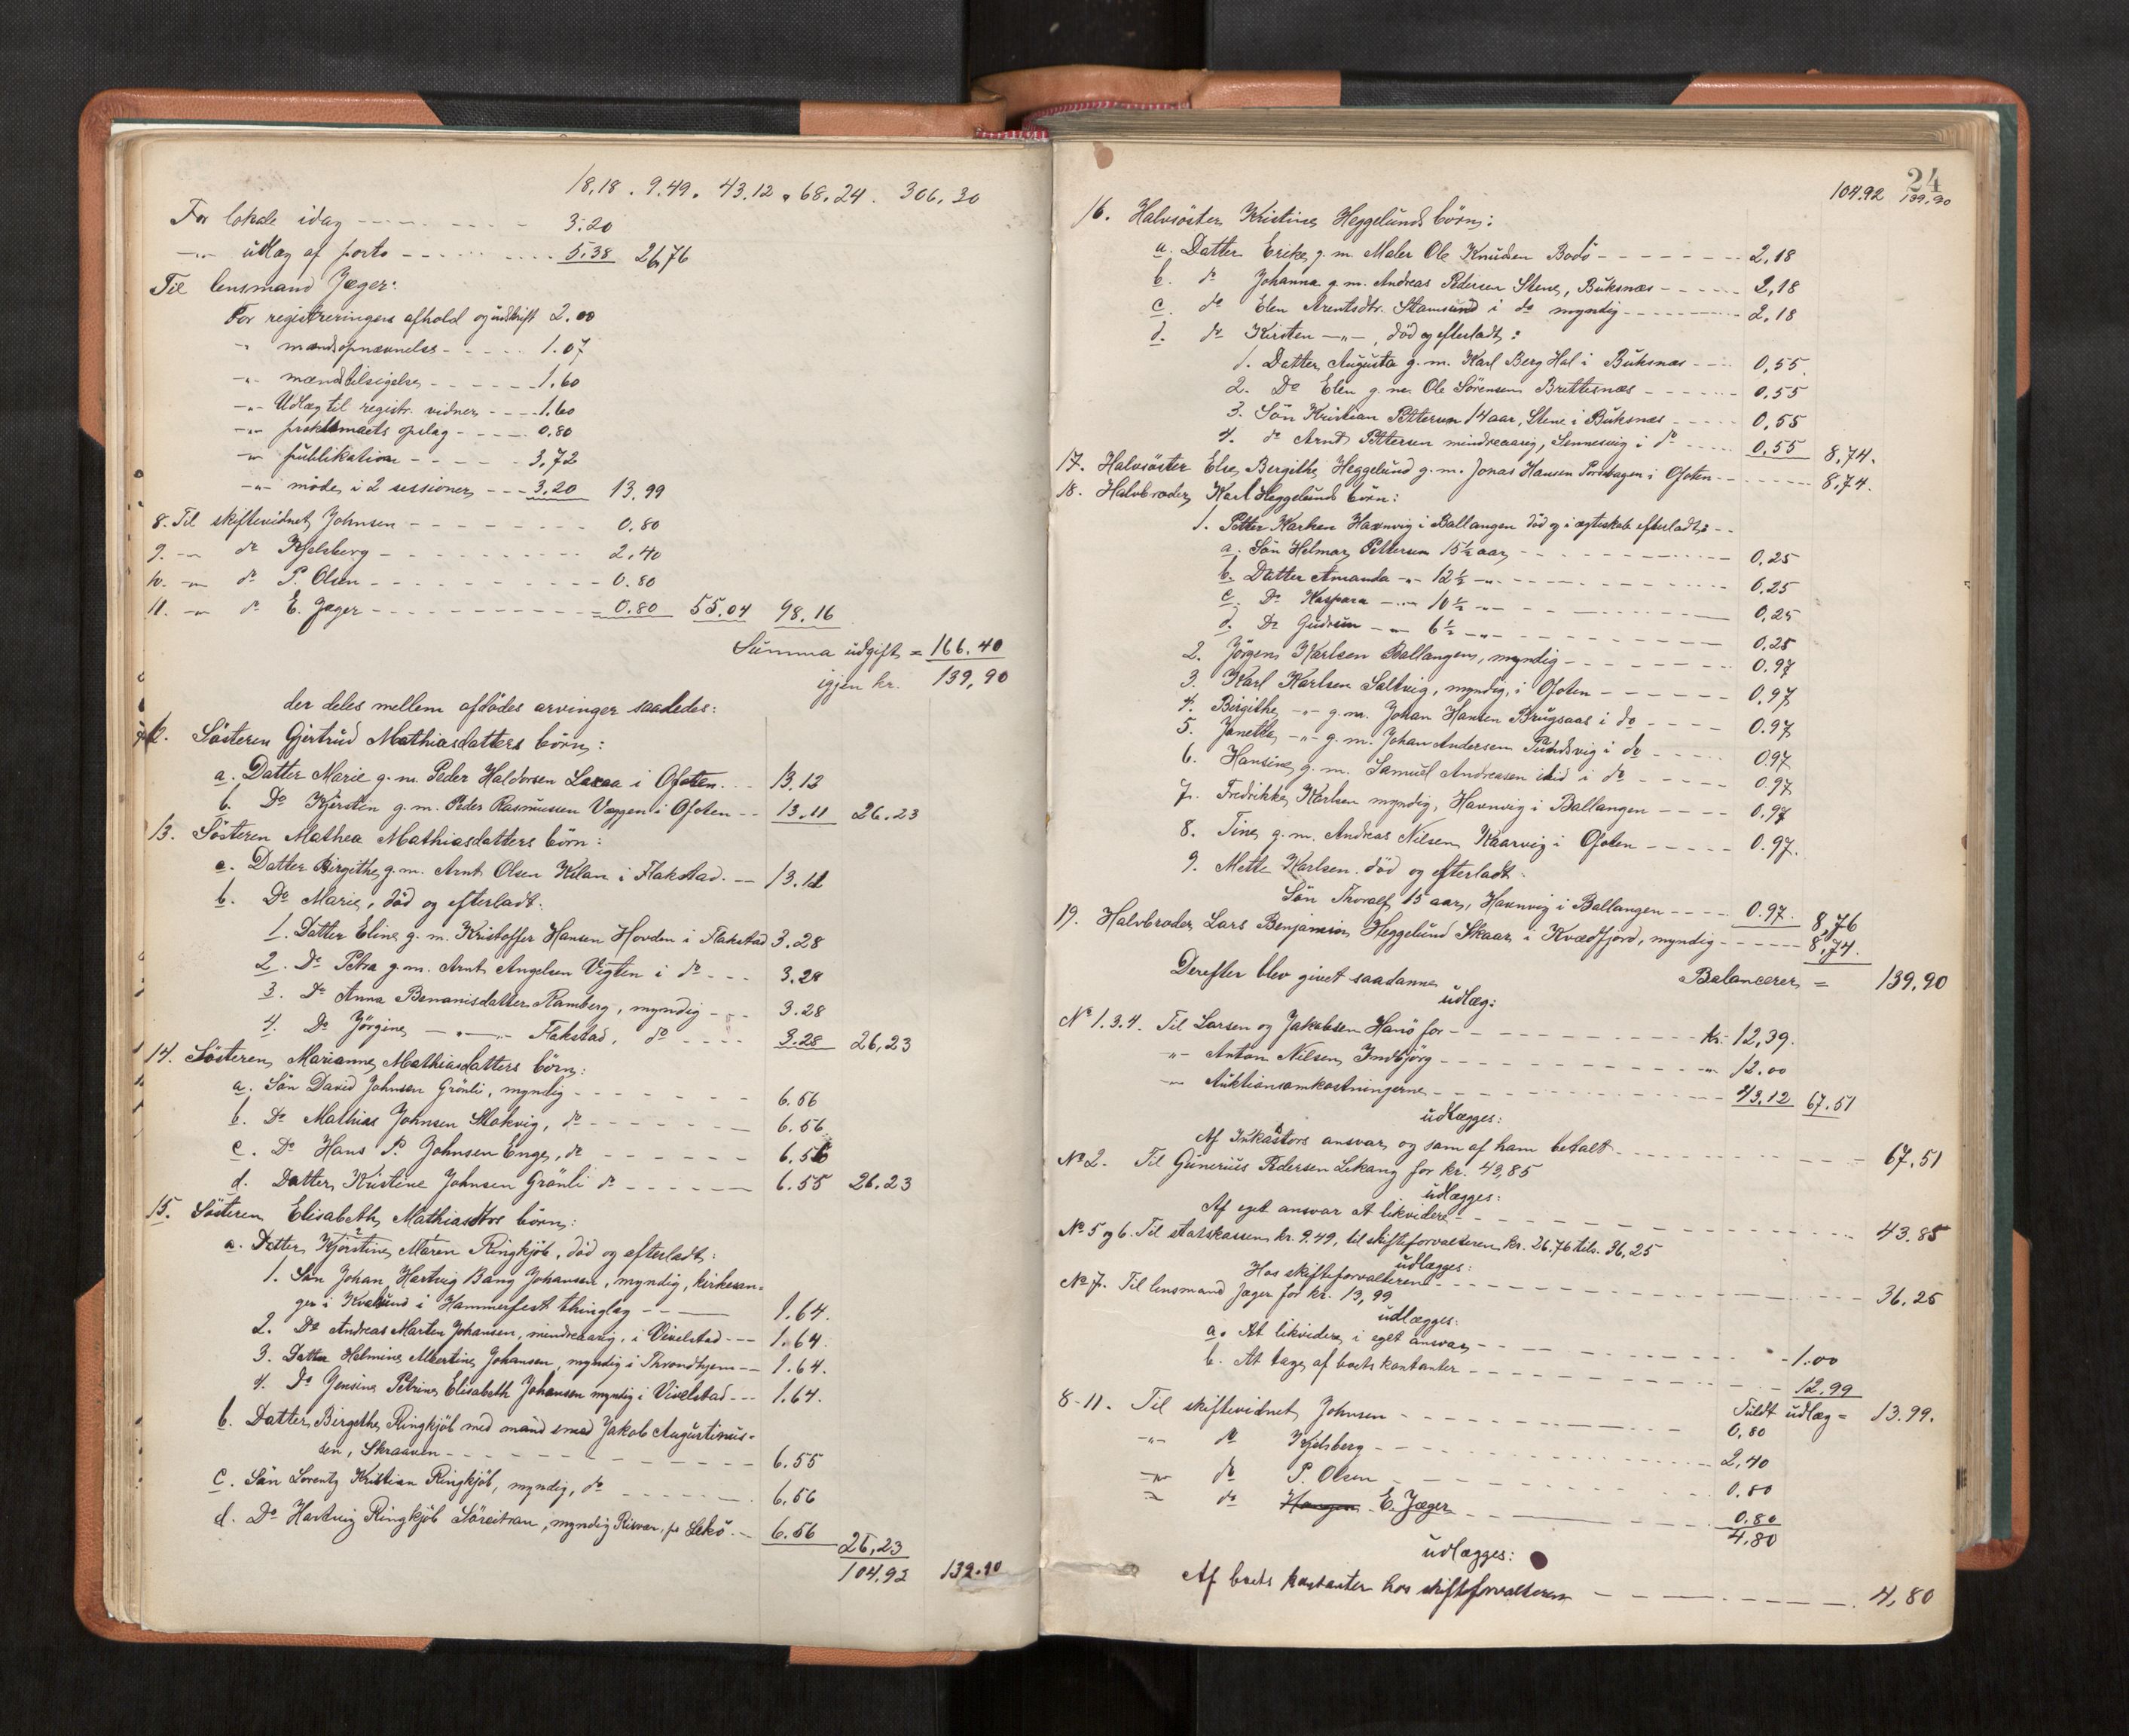 18.18. 9.49. 43.12. 68.24. 306.30
For lokale idag - - - - - - 3.20
-"- udlæg af porto - - - - - - 5.38 26.76
Til lensmand Jæger:
For registreringens afhold og udskrift 2.00
-"- mændsopnævnelse - - - - - 1.07
-"- mændstilsigelse - - - - - 1.60
-"- Udlæg til registr. vidner - - - - 1.60
-"- proklamaets opslag - - - - - 0.80
-"- publikation - - - - - 3.72
-"- møde i 2 sessioner - - - 3.20 13.99
8. Til skiftevidnet Johnsen - - - - - - - 0.80
9. -"- do Kjelsberg - - - - - - - 2.40
10. -"- do P. Olsen - - - - - - - 0.80
11. -"- do E. Jæger - - - - - - - 0.80 55.04 98.16
Summa udgift = 166.40
igjen kr. 139,90
der deles mellem afdødes arvinger saaledes:
12. Søsteren Gjertrud Mathiasdatters børn:
a. Datter Marie g.m. Peder Haldorsen Laxaa i Ofoten - - - 13.12
b. Do Kjersten g.m. Peder Rasmussen Væggen i Ofoten - - 13.11 26.23
13. Søsteren Mathea Mathiasdatters børn:
a. Datter Birgithe g.m. Arnt Olsen Kilan i Flakstad - - 13.11
b. Do Marie, død og efterladt:
1. Datter Eline g.m. Kristoffer Hansen Hovden i Flakstad 3.28
2. Do Petra g.m. Arnt Angelsen Vigten i do - - - 3.28
3. Do Anna Benonisdatter Ramberg, myndig - - - 3.28
4. Do Jørgine -"- Flakstad, do - - - - 3.28 26,23
14. Søsteren Marianne Mathiasdatters børn:
a. Søn David Johnsen Grønli, myndig - - - - - - 6.56
b. Do Mathias Johnsen Stokvig, do - - - - - - 6.56
c. Do Hans P. Johnsen Enge, do - - - - - - 6.56
d. Datter Kristine Johnsen Grønli do - - - - - - 6.55 26.23
15. Søsteren Elisabeth Mathiasdtrs børn:
a. Datter Kjørstine Maren Ringkjøb, død og efterladt:
1. Søn Johan Hartvig Bang Johansen, myndig, kirkesan-
ger i Kvalsund i Hammerfest thinglag - - - 1.64.
2. Do Andreas Marten Johansen, mindreaarig, i Vivelstad - - - 1.64.
3. Datter Helmine Albertine Johansen, myndig i Throndhjem - - 1.64.
4. Do Jensine Petrine Elisabeth Johansen myndig i Vivelstad - - - 1.64.
b. Datter Birgithe Ringkjøb med mand smed Jakob Augustinus-
sen, Skraaven - - - - - - - - 6.55
c. Søn Lorentz Kristian Ringkjøb, myndig, do - - - - - - 6,56
d. Do Hartvig Ringkjøb Støreitran, myndig Risvær, pr Lekø - - 6.56 26,23
104.92 139.90
24
104.92 139.90
16. Halvsøster Kristine Heggelunds børn:
a. Datter Erike g.m. Maler Ole Knudsen Bodø - - - - - - - 2,18
b. do Johanna g.m. Andreas Pedersen Stene, Buksnæs - - - - - 2,18
c. do Elen Arentsdtr. Stamsund i do myndig - - - - - - - 2,18
d. do Kirsten -"-, død og efterladt:
1. Datter Augusta g.m. Karl Berg Hol i Buksnæs - - - 0,55.
2. Do Elen g.m. Ole Sørensen Brettesnæs - - - - - - 0,55
3. Søn Kristian Pettersen 14 aar, Stene i Buksnæs - - - - - 0,55
4. do Arnt Pettersen mindreaarig, Sennesvig i do - - - - 0,55 8,74.
17. Halvsøster Else Bergithe Heggelund g.m. Jonas Hansen Pordsbagen i Ofoten - - - - - 8,74.
18. Halvbroder Karl Heggelunds børn:
1. Petter Karlsen Havnvig i Ballangen død og i ægteskab efterladt: - -
a. Søn Helmar Pettersen 15½ aar, - - - - - - - 0,25
b. Datter Amanda -"- 12½ -"- - - - - - - 0,25
c. Do Kaspara -"- 10½ -"- - - - - - - 0,25
d. Do Gudrun -"- 6½ -"- - - - - - - 0,25
2. Jørgen Karlsen Ballangen, myndig - - - - - - - 0.97
3. Karl Karlsen Saltvig, myndig, i Ofoten - - - - - - 0.97
4. Birgithe -"- g.m. Johan Hansen Brugsaas i do - - - - 0.97
5. Janetha -"- g.m. Johan Andersen Sandsvig i do - - - 0.97
6. Hansine g.m. Samuel Andreasen ibid i do - - - - 0.97
7. Fredrikke Karlsen myndig, Havnvig i Ballangen - - - - 0.97
8. Tine g.m. Andreas Nilsen Kaarvig i Ofoten - - - - - 0.97.
9. Mette Karlsen død og efterladt.
Søn Thoralf 15 aar, Havnvig i Ballangen - - - - 0.97. 8,76
19. Halvbroder Lars Benjamin Heggelund Skaar i Kvædfjord, myndig - - - - - 8,74.
Balancerer = 139,90
Derefter blev givet saadanne
udlæg:
No 1.3.4. Til Larsen og Jakobsen Hanø for - - - - - - - kr. 12,39.
-"- Anton Nilsen Indbjørg - - - - - - - " 12.00
-"- Auktionsomkostningerne - - - - - - - 43,12 67.51
udlægges:
Af Inkassators ansvar og som af ham betalt - - - - - - - 67,51
No 2. Til Gunerius Pedersen Lekang for kr. 43,85
udlægges:
Af eget ansvar at likvidere - - - - - - - 43.85
No 5 og 6. Til statskassen kr. 9.49, til skifteforvalteren kr. 26.76 tils. 36,25
udlægges:
Hos skifteforvalteren - - - - - - - 36.25
No 7. Til lensmand Jæger for kr. 13,99
udlægges:
a. At likvidere i eget ansvar - - - - - - 1.00
b. At tage af boets kontanter - - - - - - 12.99
Fuldt udlæg = 13.99.
8-11. Til skiftevidnet Johnsen - - - - - - 0,80
-"- do Kjelsberg - - - - - - 2,40
-"- do P. Olsen - - - - - - 0.80
-"- do E. Jæger - - - - - - 0.80
4,80
udlægges:
Af boets kontanter hos skifteforvalteren - - - - - - 4,80